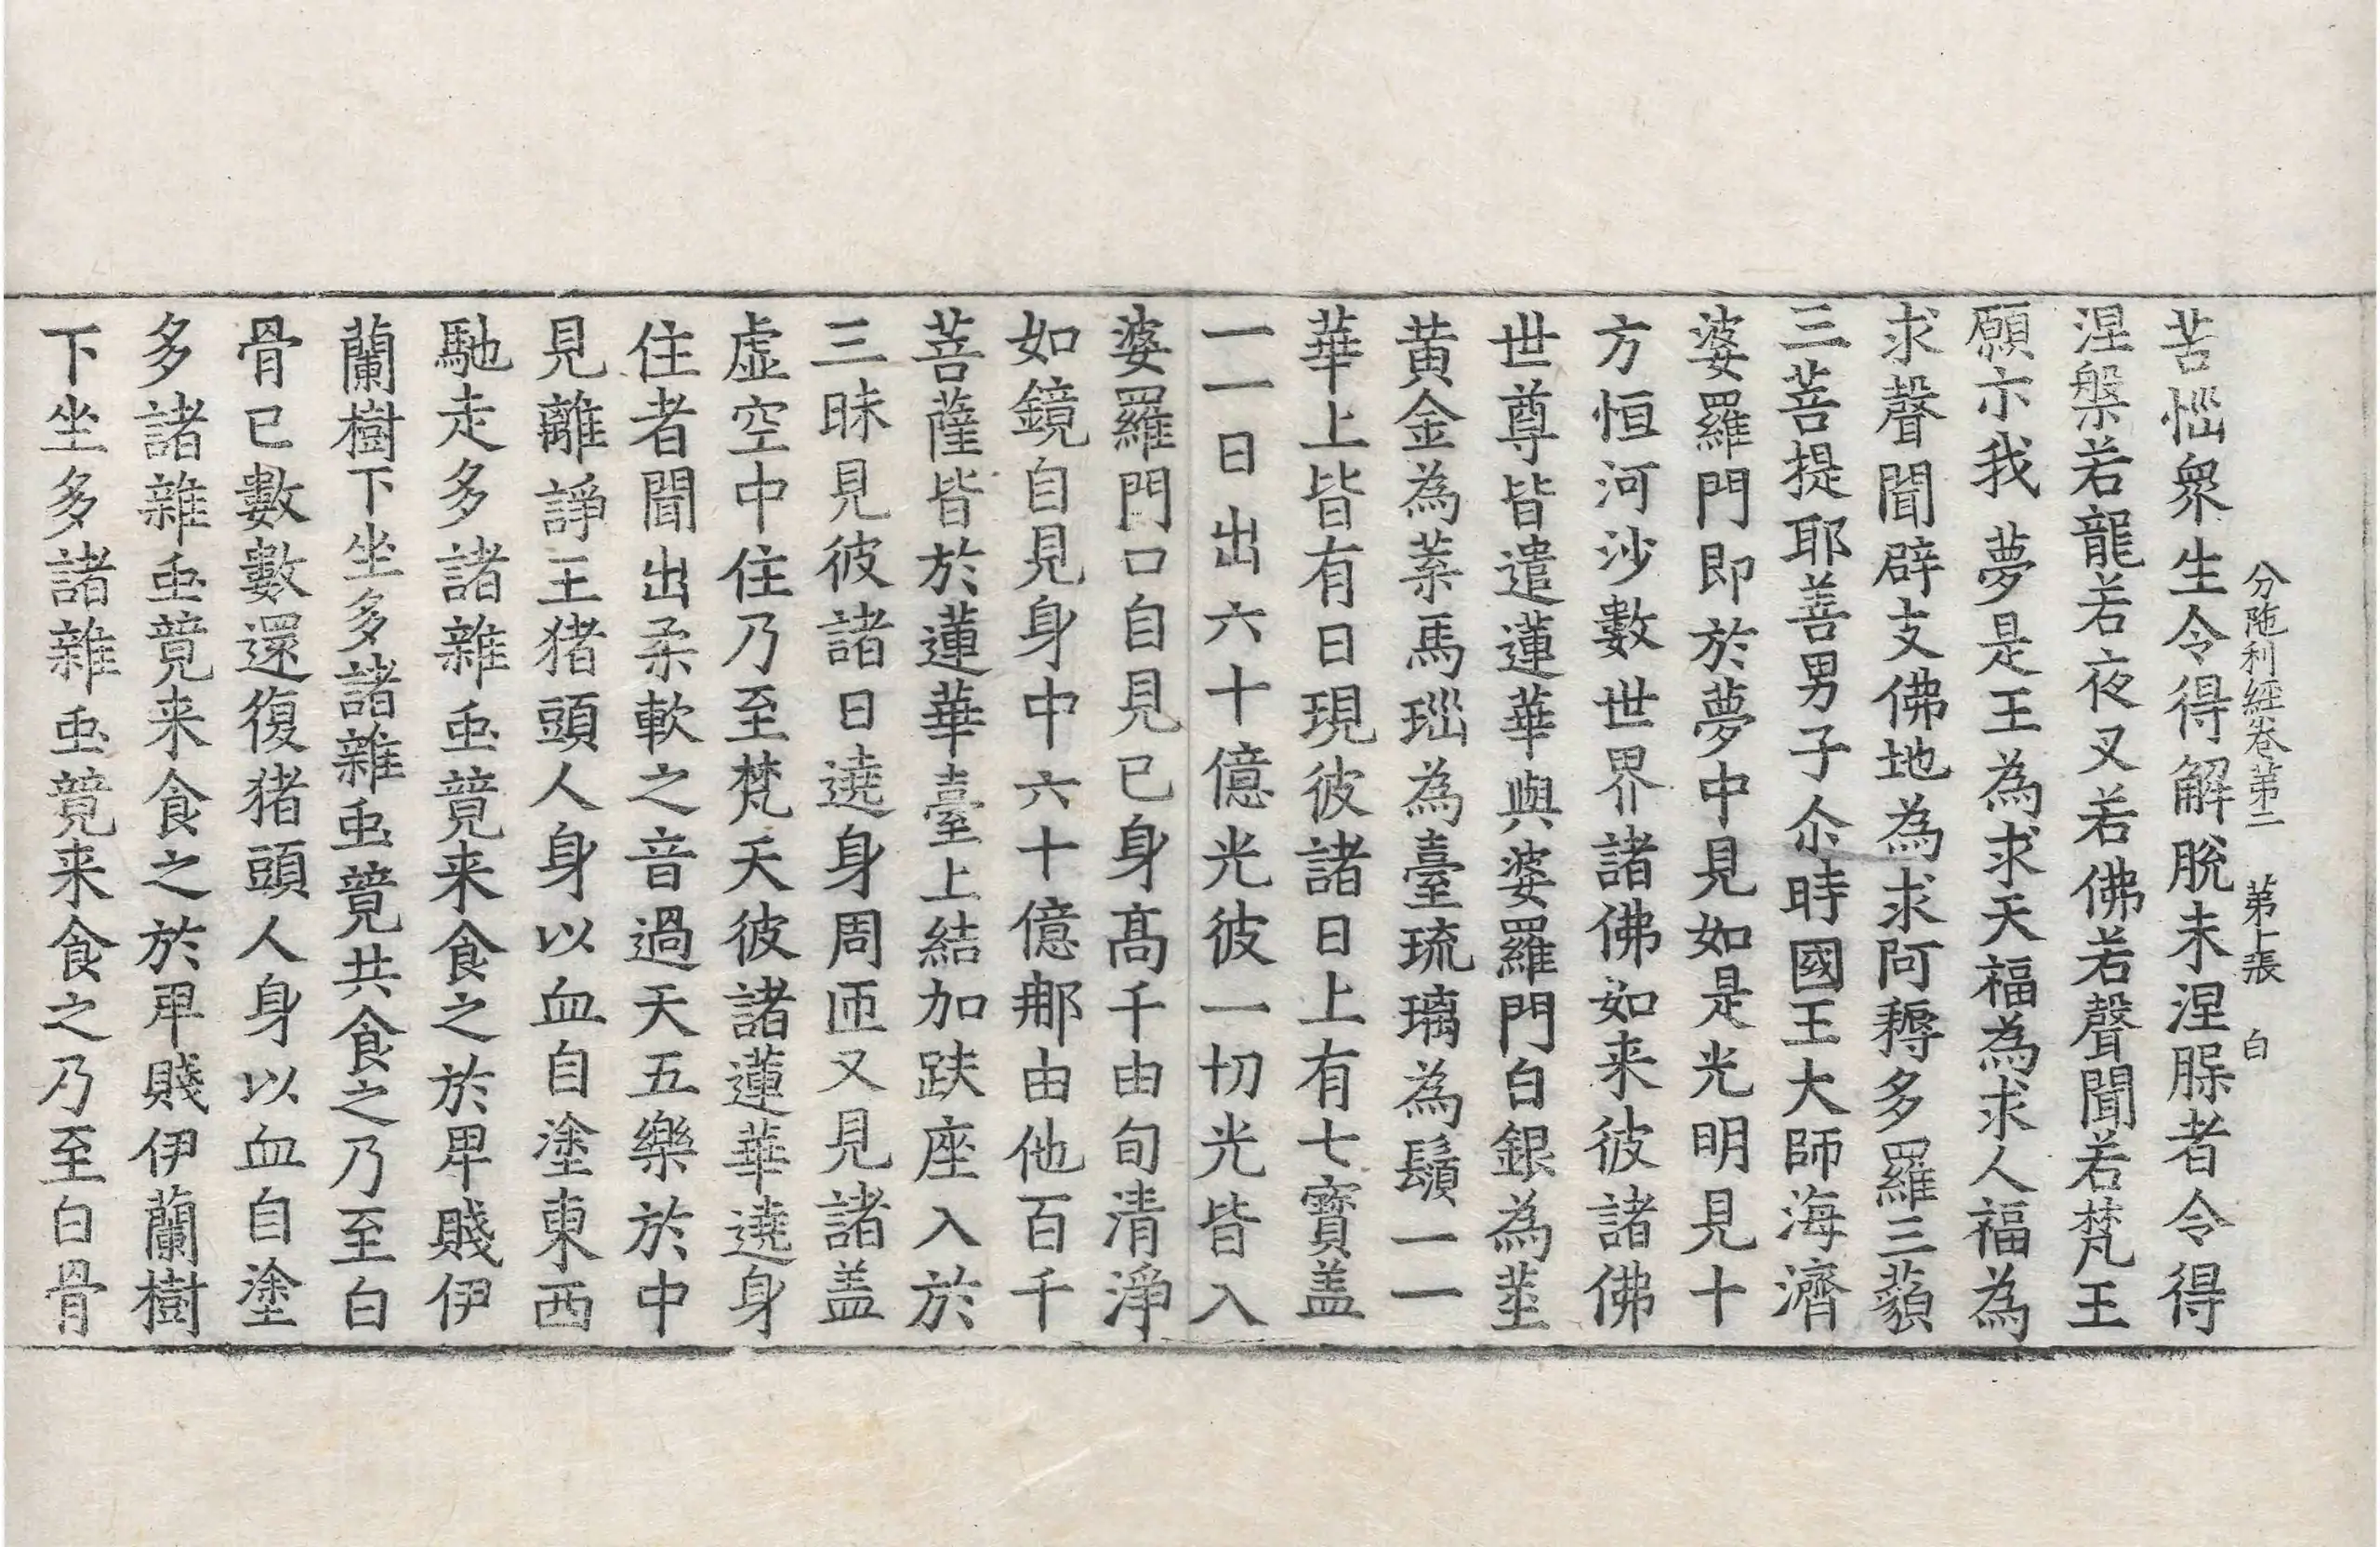 分陁利經卷第二　第七張　白
苦惱衆生令得解脫未涅槃者令得
涅槃若龍若夜叉若佛若聲聞若梵王
願示我夢是王為求天福為求人福為
求聲聞辟支佛地為求阿耨多羅三藐
三菩提耶善男子尒時國王大師海濟
婆羅門即於夢中見如是光明見十
方恒河沙數世界諸佛如来彼諸佛
世尊皆遣蓮華與婆羅門白銀為莖
黃金為葉馬瑙為臺琉璃為鬚一一
華上皆有日現彼諸日上有七寶盖
一一日出六十億光彼一切光皆入
婆羅門口自見已身髙千由旬清淨
如鏡自見身中六十億那由他百千
菩薩皆於蓮華臺上結加趺座入於
三昧見彼諸日遶身周匝又見諸盖
虛空中住乃至梵天彼諸蓮華遶身
住者聞出柔軟之音過天五樂於中
見離諍王猪頭人身以血自塗東西
馳走多諸雜䖝競来食之於卑賤伊
蘭樹下坐多諸雜䖝競共食之乃至白
骨已數數還復猪頭人身以血自塗
多諸雜䖝競来食之於卑賤伊蘭樹
下坐多諸雜䖝競来食之乃至白骨